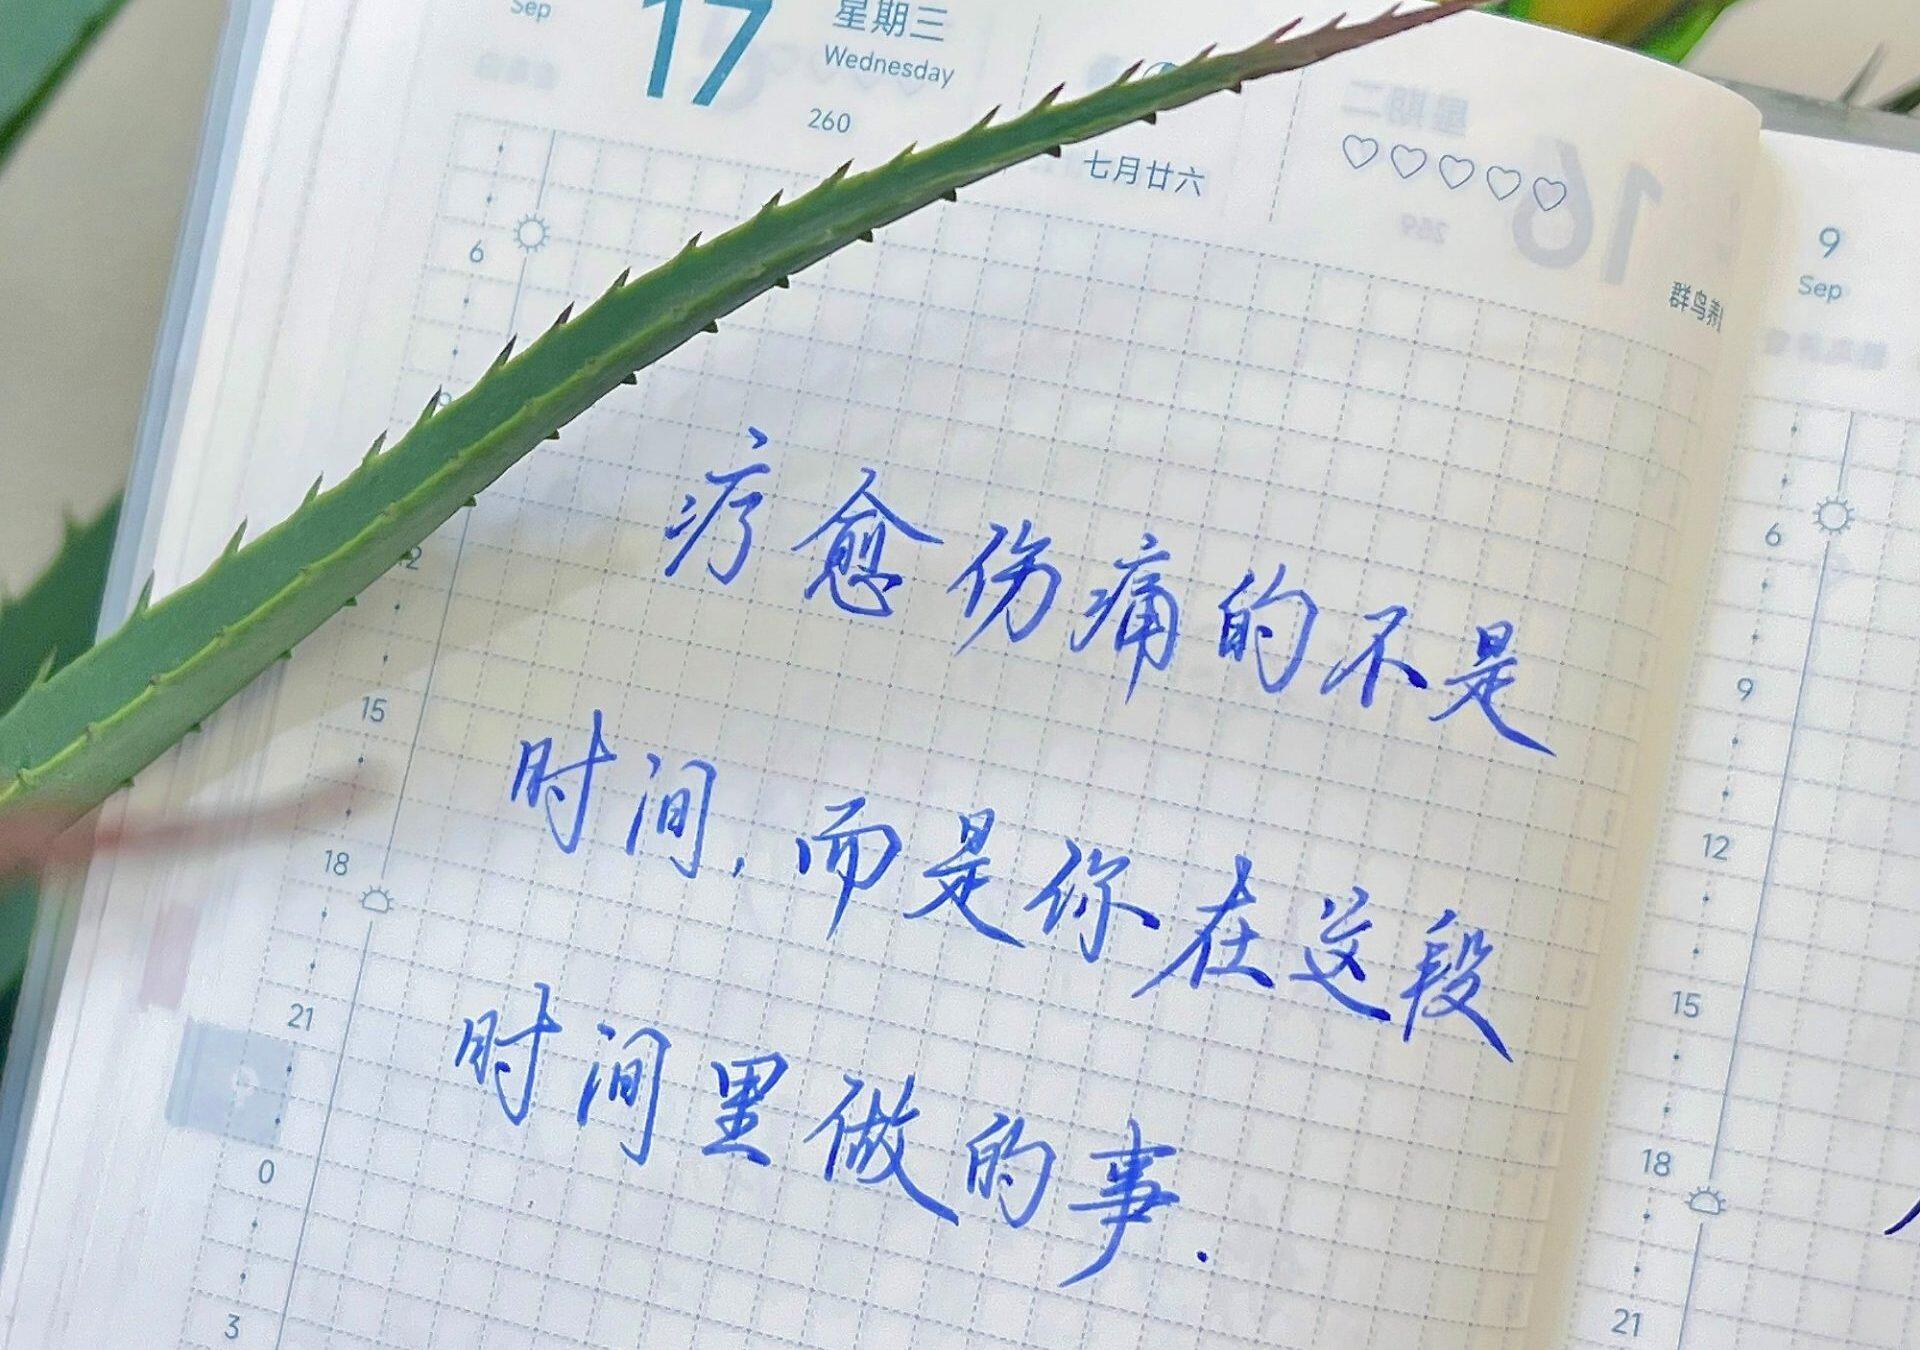 Sep
17
星期三
Wednesday
260
七月廿六
6
12
15
18
21
0
3
疗愈伤痛的不是
时间,而是你在这段
时间里做的事.
群鸟养
9
Sep
6
9
12
15
18
21